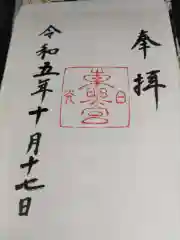 奉拝
東照宮
令和五年十月十七日